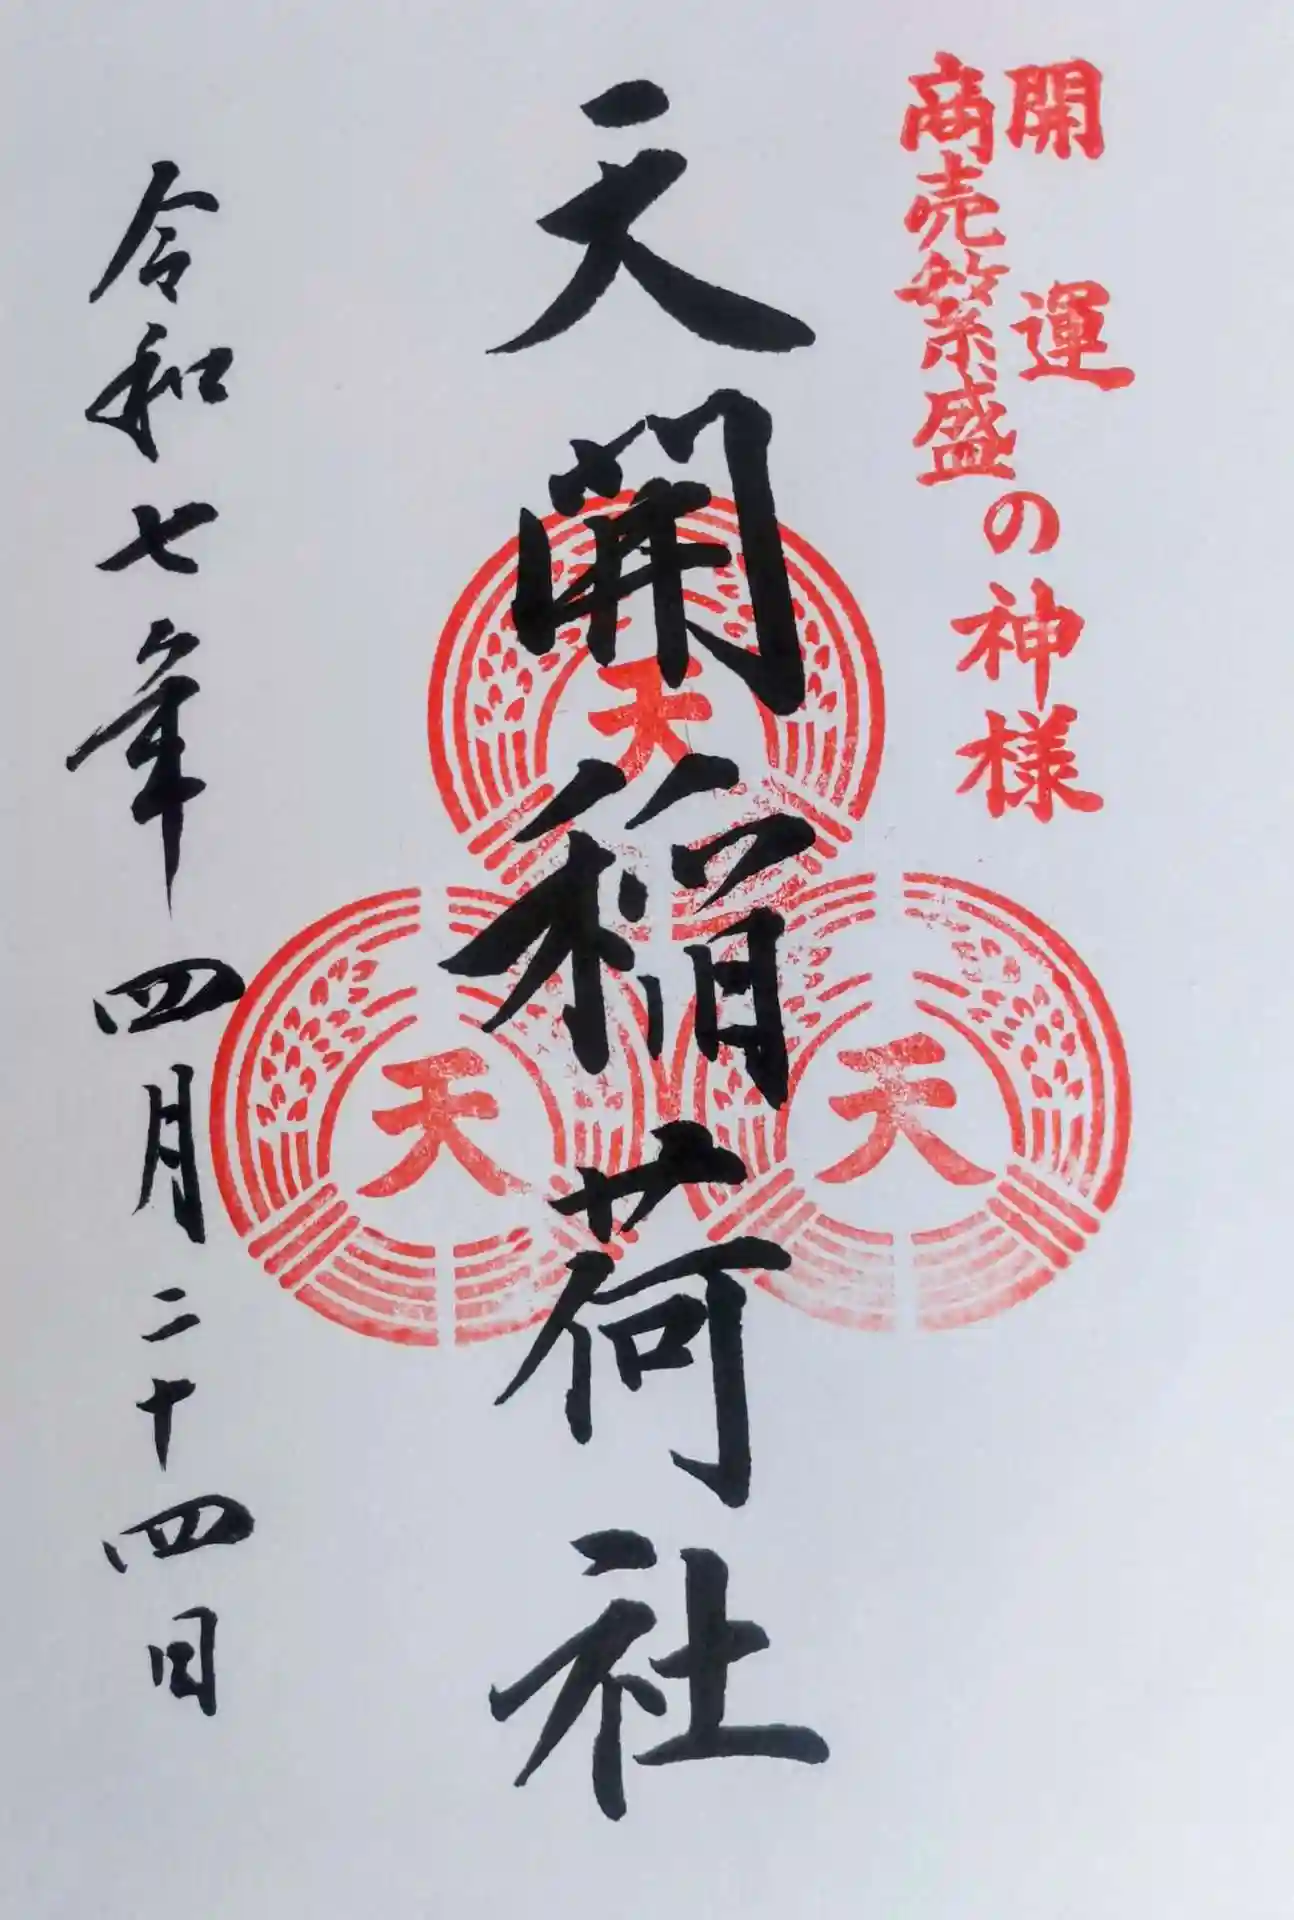 開運
商売繁盛
の神様
天開稲荷社
天
天
天
令和七年四月二十四日